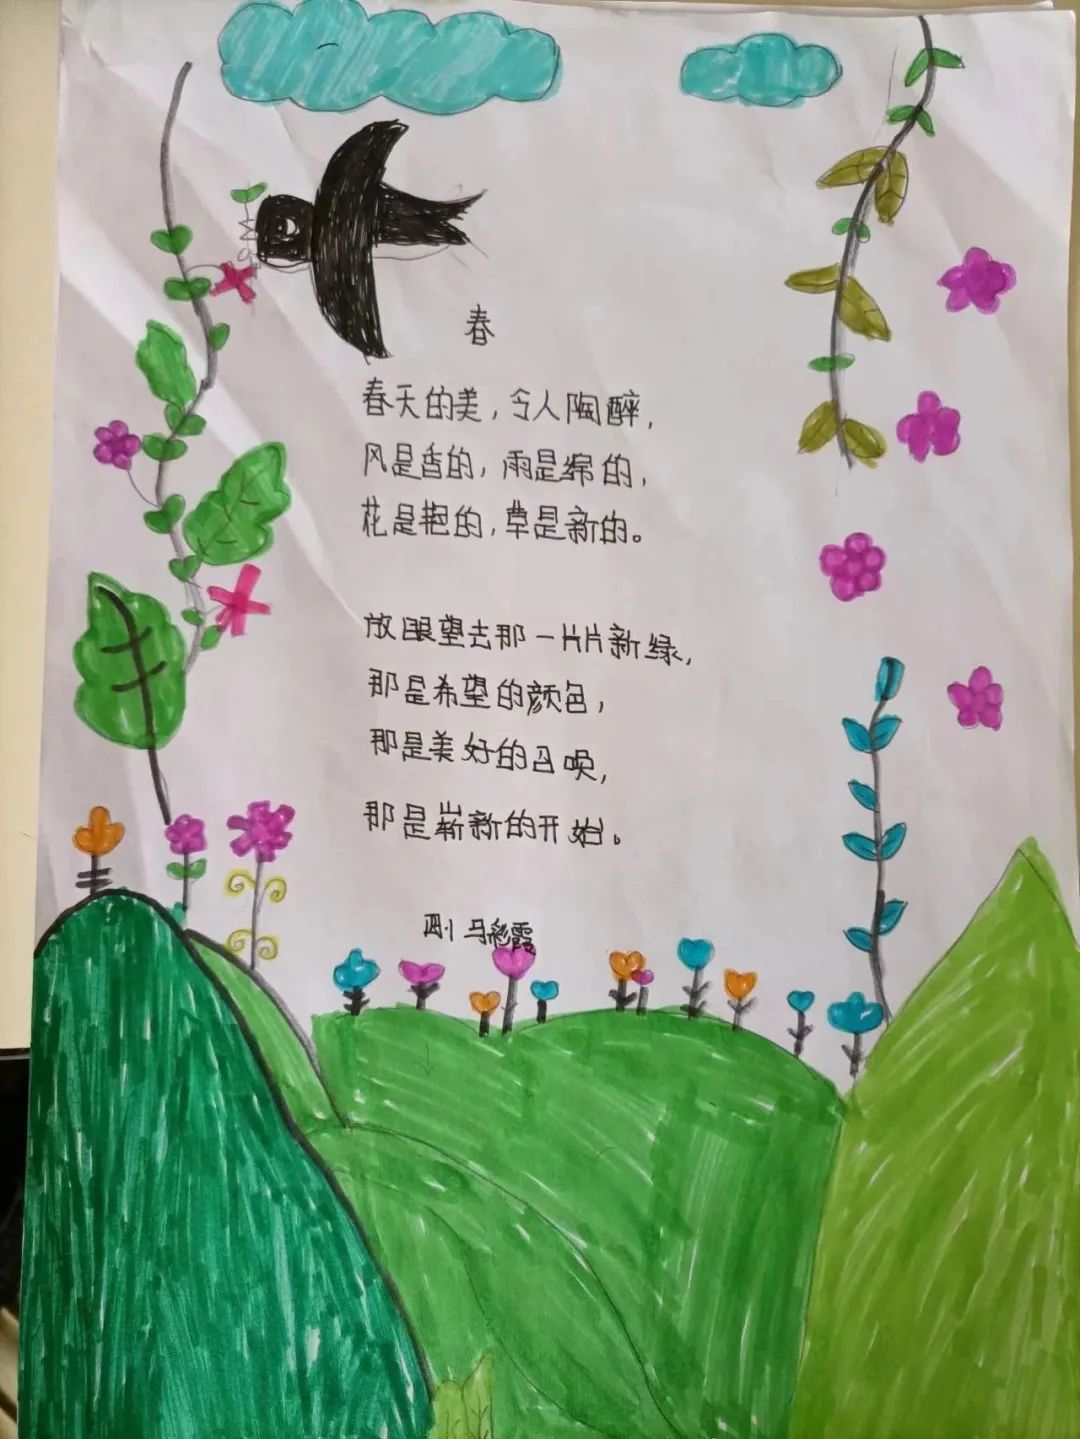 春
春天的美，令人陶醉，
风是香的，雨是绵的，
花是艳的，草是新的。
放眼望去那一片片新绿，
那是希望的颜色，
那是美好的召唤，
那是崭新的开始。
马彩霞